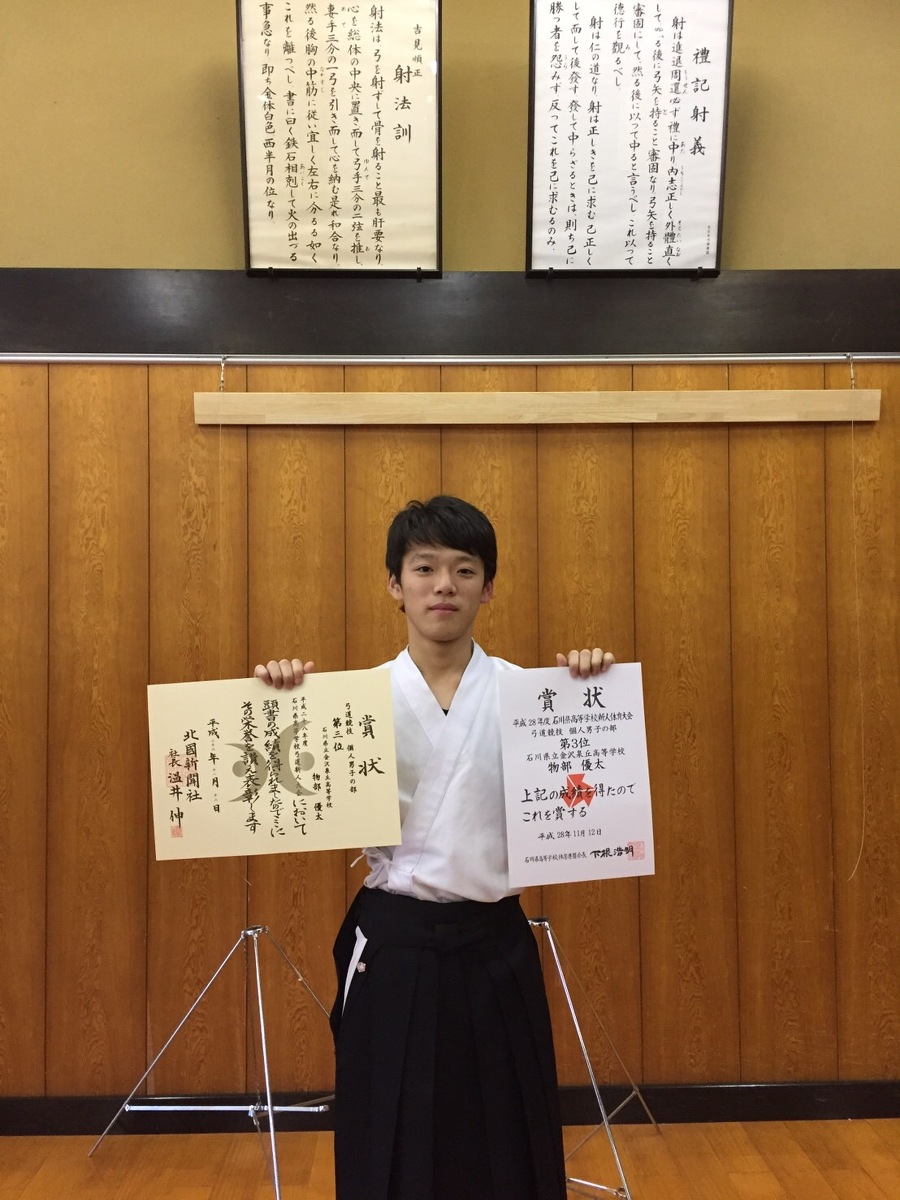 禮記射義
射は進退周還必ず禮に中り内志正しく外體直く
して、然る後に弓矢を持ること審固なり弓矢を持ること
審固にして、然る後に以って中ると言うべし これ以って
徳行を觀るべし。
射は仁の道なり 射は正しきを己に求む 己正しく
して而して後発す 発して中らざるときは、則ち己に
勝つ者を怨みず 反ってこれを己に求むるのみ。
吉見順正
射法訓
射法は弓を射ずして骨を射ること最も肝要なり。
心を総体の中央に置き而して弓手三分の二弦を推し、
妻手三分の一弓を引き而して心を納む是れ和合なり。
然る後胸の中筋に従い宜しく左右に分るる如く
これを離つべし 書に曰く鉄石相剋して火の出づる
事急なり 即ち金体白色 西半月の位なり。
賞状
弓道競技 個人男子の部
第三位
石川県立金沢泉丘高等学校
物部 優太
平成二十八年度
石川県高等学校弓道新人 において
頭書の成績を得られましたのでここに
その栄誉を讃え表彰します
平成 年 月 日
北國新聞社
社長 温井 伸
賞状
平成28年度 石川県高等学校新人体育大会
弓道競技 個人男子の部
第3位
石川県立金沢泉丘高等学校
物部 優太
上記の成績を得たので
これを賞する
平成28年11月12日
石川県高等学校体育連盟会長 下根 浩明